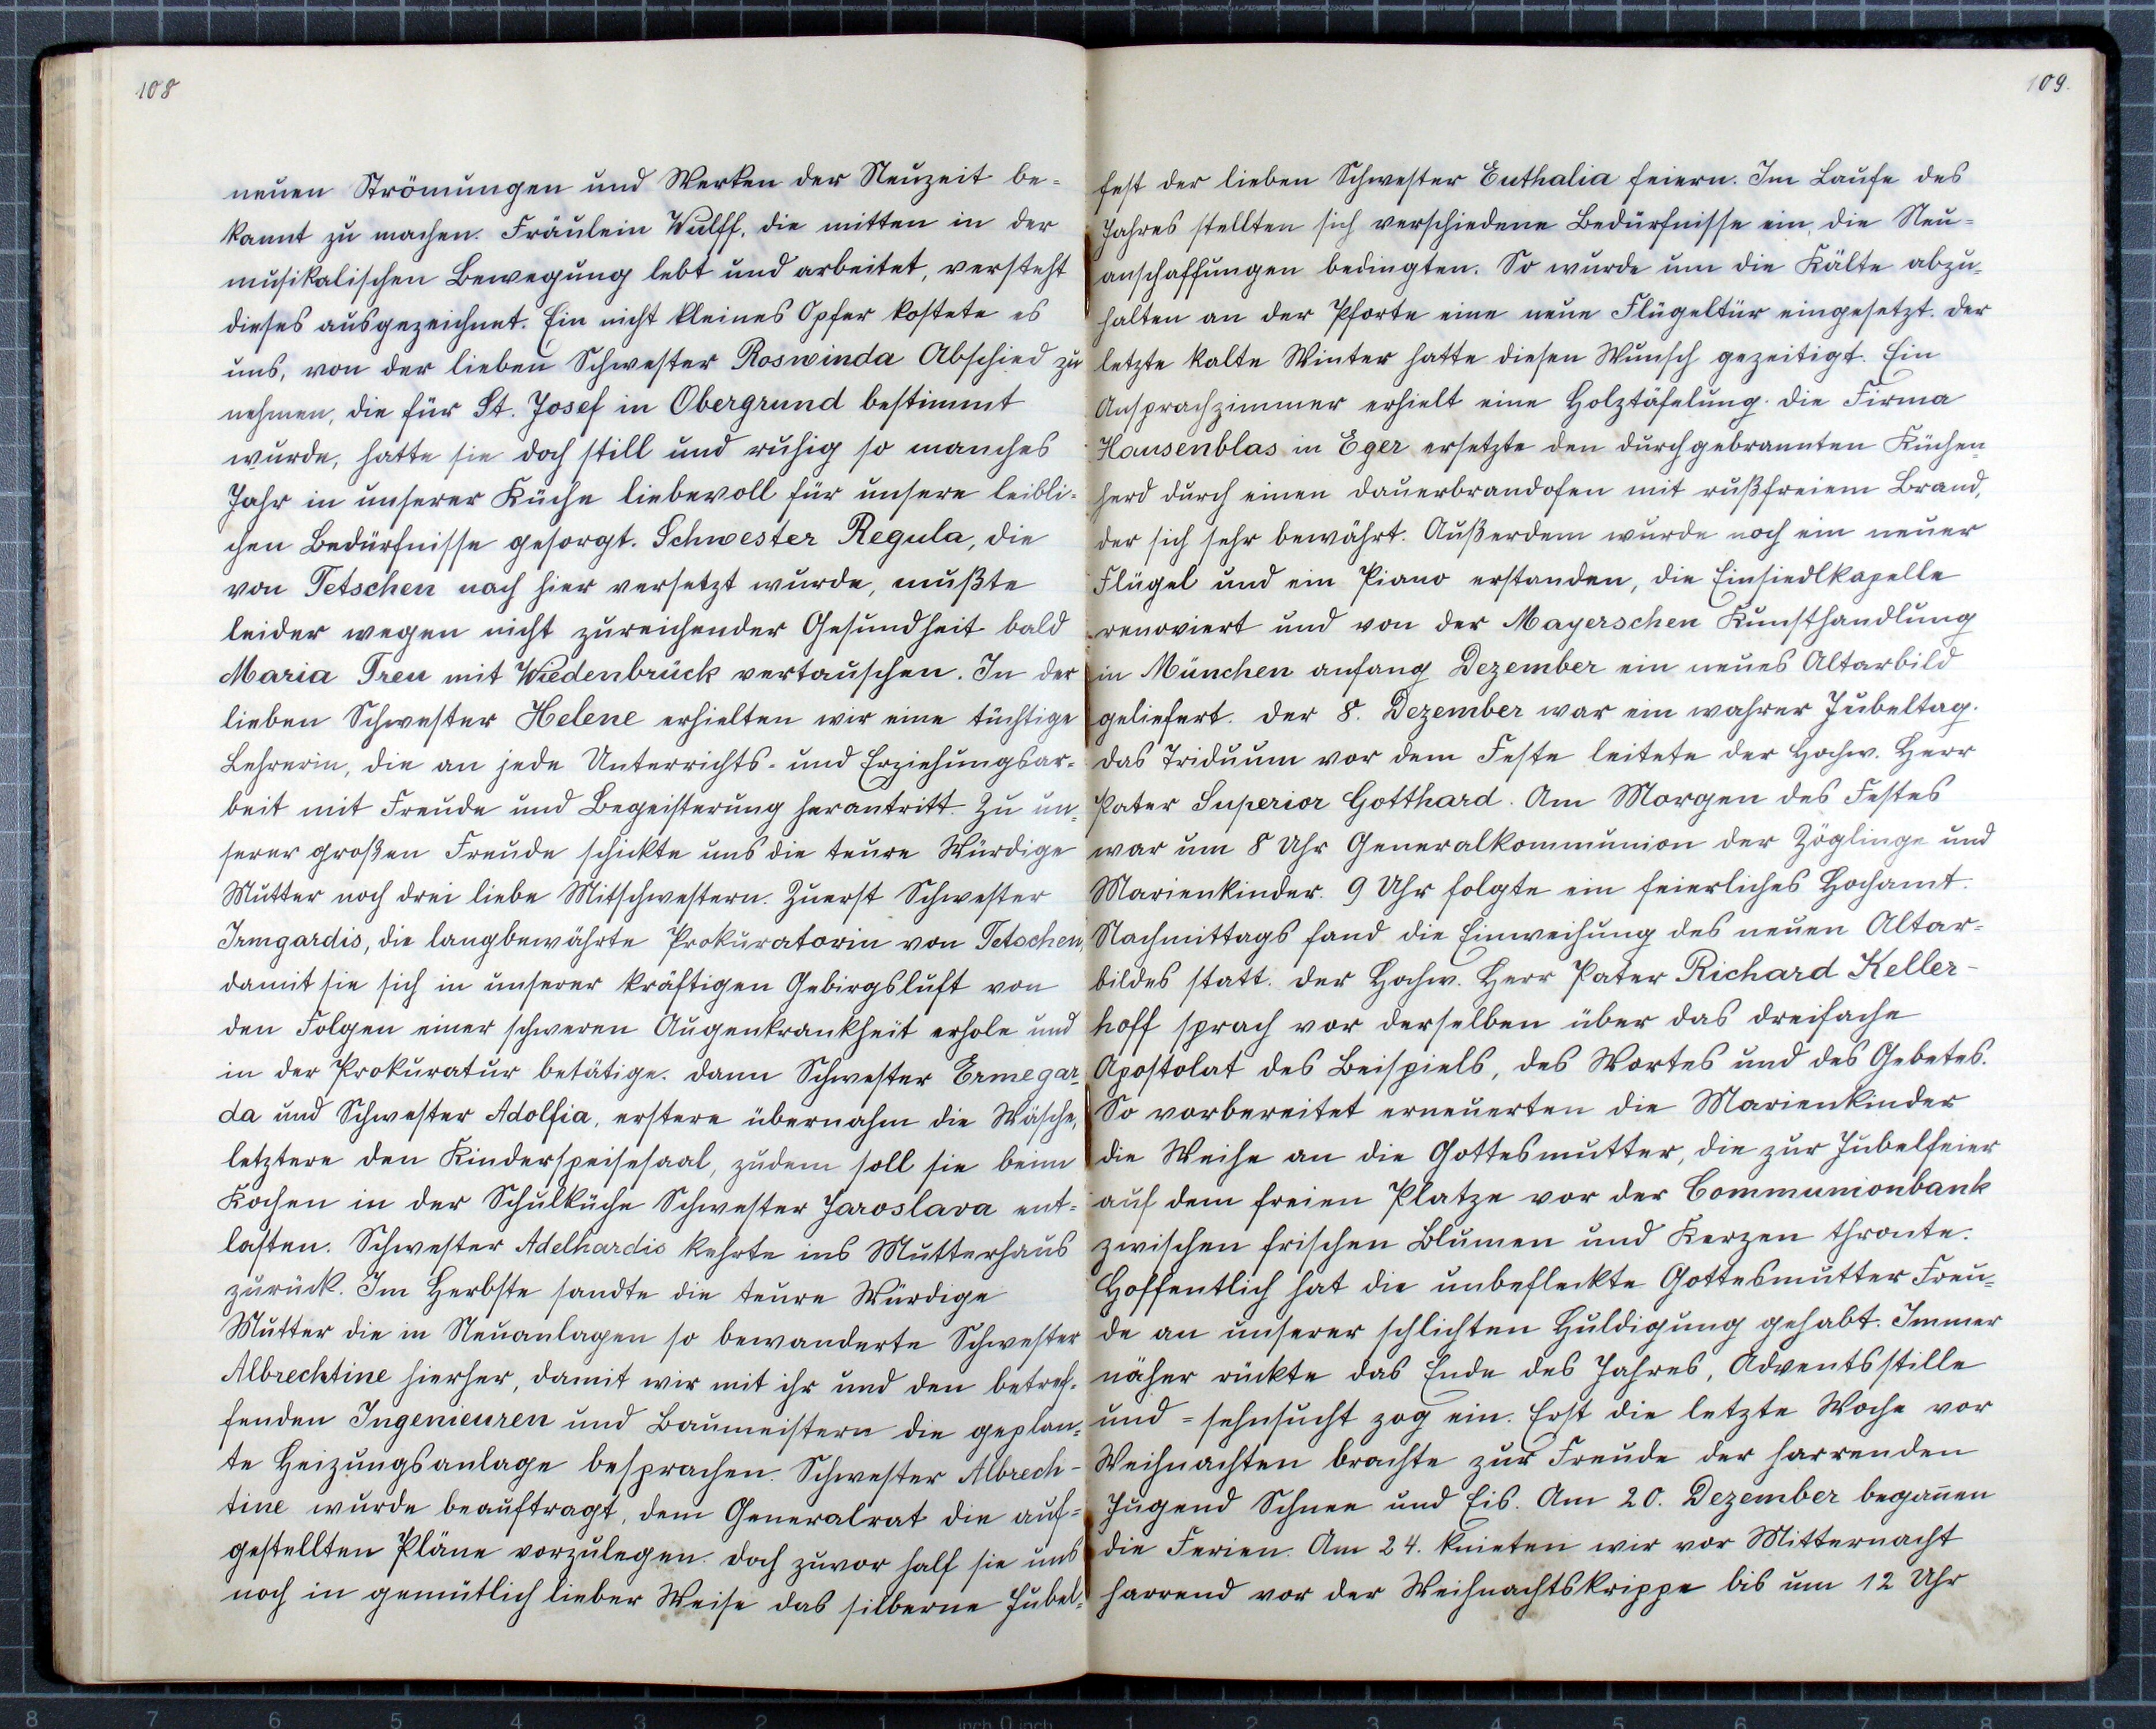 108
neuen Strömungen und Werken der Neuzeit be-
kannt zu machen. Fräulein Wulff, die mitten in der
musikalischen Bewegung lebt und arbeitet, versteht
dieses ausgezeichnet. Ein nicht kleines Opfer kostete es
uns, von der lieben Schwester Roswinda Abschied zu
nehmen, die für St. Josef in Obergrund bestimmt
wurde, hatte sie doch still und ruhig so manches
Jahr in unserer Küche liebevoll für unsere leibli-
chen Bedürfnisse gesorgt. Schwester Regula, die
von Tetschen nach hier versetzt wurde, mußte
leider wegen nicht zureichender Gesundheit bald
Maria Treu mit Wiedenbrück vertauschen. In der
lieben Schwester Helene erhielten wir eine tüchtige
Lehrerin, die an jede Unterrichts- und Erziehungsar-
beit mit Freude und Begeisterung herantritt. Zu un-
serer großen Freude schickte uns die teure Würdige
Mutter noch drei liebe Mitschwestern. Zuerst Schwester
Irmgardis, die langbewährte Prokuratorin von Tetschen,
damit sie sich in unserer kräftigen Gebirgsluft von
den Folgen einer schweren Augenkrankheit erhole und
in der Prokuratur betätige. Dann Schwester Ermegar-
da und Schwester Adolfia, erstere übernahm die Wäsche,
letztere den Kinderspeisesaal, zudem soll sie beim
Kochen in der Schulküche Schwester Jaroslava ent-
lasten. Schwester Adelhardis kehrte ins Mutterhaus
zurück. Im Herbste sandte die teure Würdige
Mutter die in Neuanlagen so bewanderte Schwester
Albrechtine hierher, damit wir mit ihr und den betref-
fenden Ingenieuren und Baumeistern die geplan-
te Heizungsanlage besprachen. Schwester Albrech-
tine wurde beauftragt, dem Generalrat die auf-
gestellten Pläne vorzulegen. Doch zuvor half sie uns
noch in gemütlich lieber Weise das silberne Jubel-
109.
fest der lieben Schwester Euthalia feiern. Im Laufe des
Jahres stellten sich verschiedene Bedürfnisse ein, die Neu-
anschaffungen bedingten. So wurde um die Kälte abzu-
halten an der Pforte eine neue Flügeltür eingesetzt. Der
letzte kalte Winter hatte diesen Wunsch gezeitigt. Ein
Ansprachzimmer erhielt eine Holztäfelung. Die Firma
Hausenblas in Eger ersetzte den durchgebrannten Küchen-
herd durch einen Dauerbrandofen mit rußfreiem Brand,
der sich sehr bewährt. Außerdem wurde noch ein neuer
Flügel und ein Piano erstanden, die Einsiedlkapelle
renoviert und von der Mayerschen Kunsthandlung
in München anfang Dezember ein neues Altarbild
geliefert. Der 8. Dezember war ein wahrer Jubeltag.
Das Triduum vor dem Feste leitete der Hochw. Herr
Pater Superior Gotthard. Am Morgen des Festes
war um 8 Uhr Generalkommunion der Zöglinge und
Marienkinder. 9 Uhr folgte ein feierliches Hochamt.
Nachmittags fand die Einweihung des neuen Altar-
bildes statt. Der Hochw. Herr Pater Richard Keller-
hoff sprach vor derselben über das dreifache
Apostolat des Beispiels, des Wortes und des Gebetes.
So vorbereitet erneuerten die Marienkinder
die Weihe an die Gottesmutter, die zur Jubelfeier
auf dem freien Platze vor der Communionbank
zwischen frischen Blumen und Kerzen thronte.
Hoffentlich hat die unbefleckte Gottesmutter Freu-
de an unserer schlichten Huldigung gehabt. Immer
näher rückte das Ende des Jahres, Adventsstille
und -sehnsucht zog ein. Erst die letzte Woche vor
Weihnachten brachte zur Freude der harrenden
Jugend Schnee und Eis. Am 20. Dezember began̄en
die Ferien. Am 24. knieten wir vor Mitternacht
harrend vor der Weihnachtskrippe bis um 12 Uhr
8 7 6 5 4 3 2 1 inch 0 inch 1 2 3 4 5 6 7 8 9